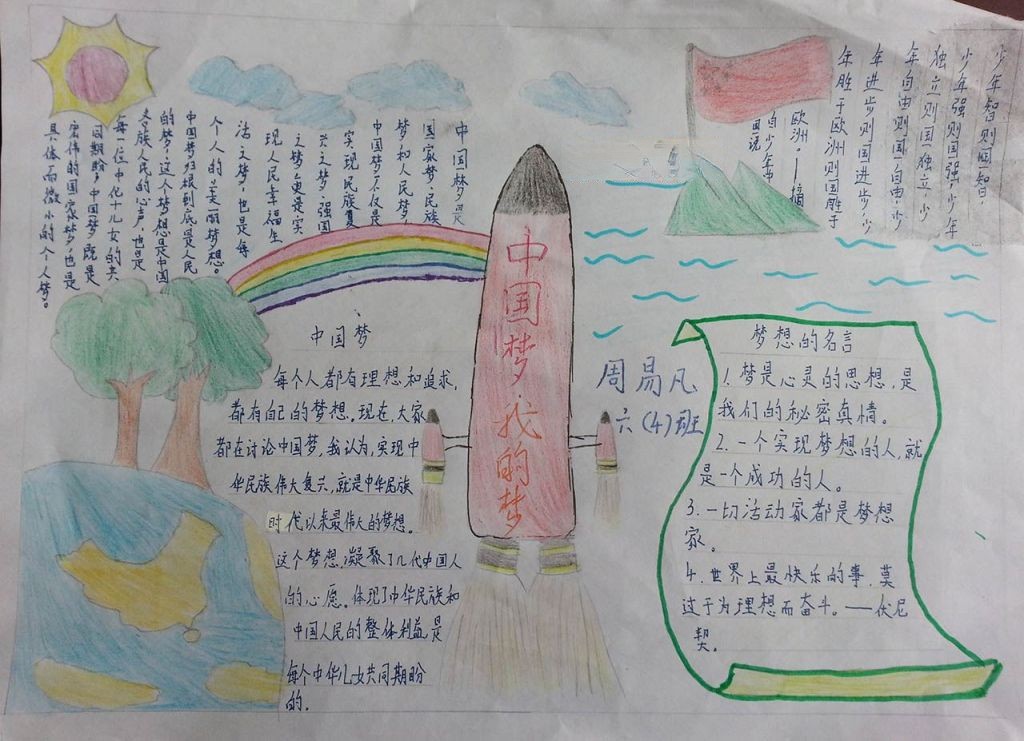 少年智则国智,
少年强则国强,少年
独立则国独立,少
年自由则国自由,少
年进步则国进步,少
年胜于欧洲则国胜于
欧洲。——摘
自少年中
国说
中国梦是
国家梦、民族
梦和人民梦,
中国梦不仅是
实现民族复
兴之梦、强国
之梦,更是实
现人民幸福生
活之梦,也是每
个人的美丽梦想。
中国梦归根到底是人民
的梦,这个人梦想是中国
各族人民的心声,也是
每一位中华儿女的共
同期盼,中国梦既是
宏伟的国家梦,也是
具体而微小的个人梦。
中国梦我的梦
中国梦
每个人都有理想和追求,
都有自己的梦想。现在,大家
都在讨论中国梦,我认为,实现中
华民族伟大复兴,就是中华民族
时代以来最伟大的梦想。
这个梦想,凝聚了几代中国人
的心愿。体现了中华民族和
中国人民的整体利益,是
每个中华儿女共同期盼
的。
周易凡
六(4)班
梦想的名言
1.梦是心灵的思想,是
我们的秘密真情。
2.一个实现梦想的人,就
是一个成功的人。
3.一切活动家都是梦想
家。
4.世界上最快乐的事,莫
过于为理想而奋斗。——伏尼
契。